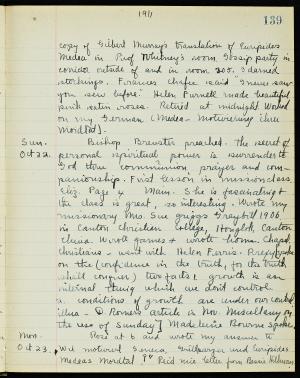 1911
139
copy of Gilbert Murray's translation of Euripides
Medea in Prof Whitney's room. Gossip party in
corridor outside of and in room 205. I darned
stockings. Frances Chafee said "I never saw
you sew before." Helen Purnell made beautiful
pink satin roses. Retired at midnight Worked
on my German (Medea - Motivierung ihres
Mordtat).
Sun. Bishop Brewster preached. The secret of
Oct 22. personal spiritual power is surrender to
God thru communion, prayer and com-
panionship. First lesson in mission class
Eliz. Page & Main. She is fascinating &
the class is great, so interesting. Wrote my
missionary Mrs. Sue Griggs Graybill 1906,
in Canton Christian College, Honglok, Canton
China. Wrote games & wrote home. Chapel
Christians - went with Helen Ferris. Prexy spoke
on the (confidence in the truth, for the truth
shall conquer) two facts 1 growth is an
internal thing which we don't control
2. conditions of growth are under our control
illus - D Roners article in Nov. Miscellany on
the use of Sunday] Madeleine Bourne spoke.
Mon. Rose at 6 and wrote my answer to
Oct 23. "Wie motiviert Seneca, Grillparzer und Euripides
Medeas Mordtat?" Rec'd nice letter from Bessie